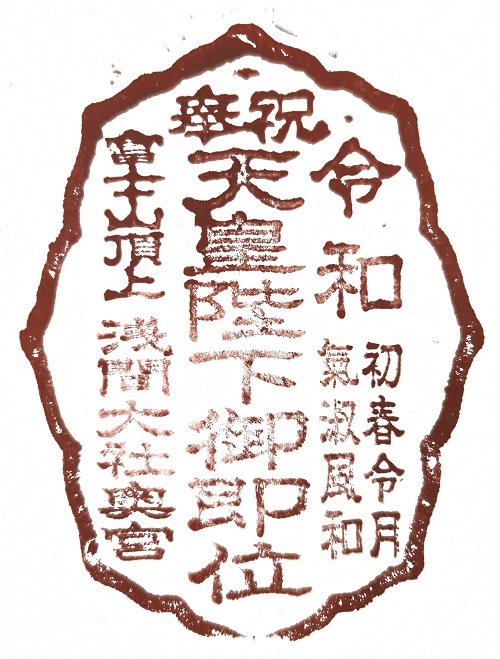 奉祝
令和
初春令月
氣淑風和
天皇陛下御即位
富士山頂上
浅間大社奥宮